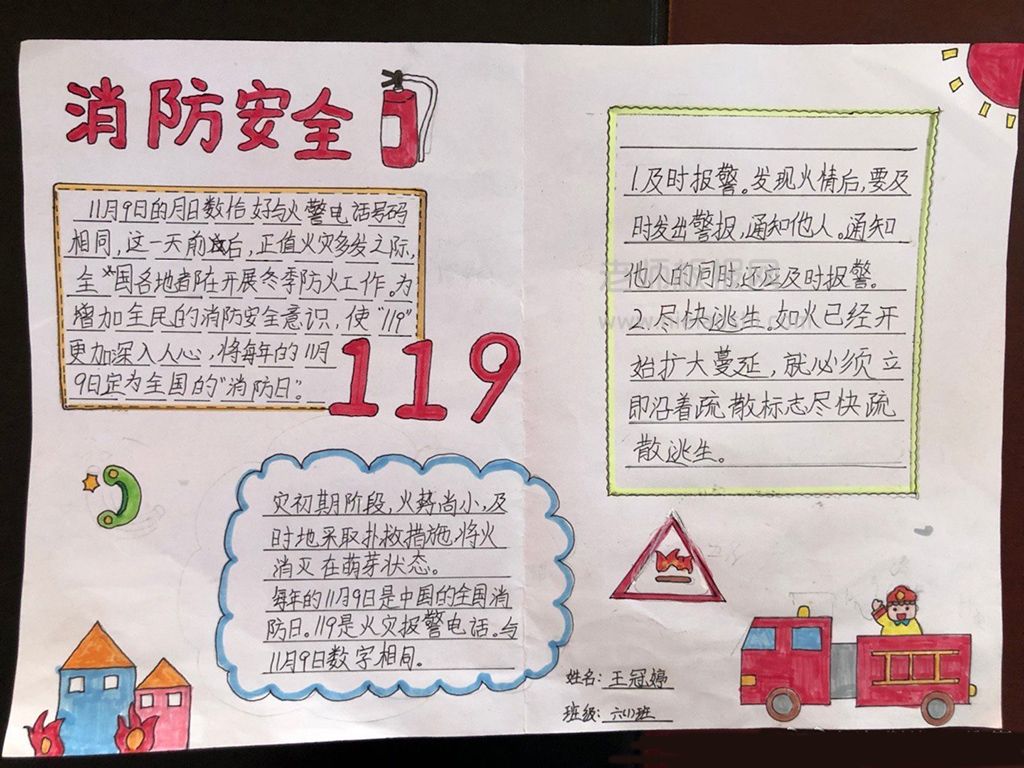 消防安全
11月9日的月日数恰好与火警电话号码
相同,这一天前后,正值火灾多发之际,
全国各地都在开展冬季防火工作。为
增加全民的消防安全意识,使"119"
更加深入人心,将每年的11月
9日定为全国的"消防日"。
119
灾初期阶段,火势尚小,及
时地采取扑救措施,将火
消灭在萌芽状态。
每年的11月9日是中国的全国消
防日。119是火灾报警电话。与
11月9日数字相同。
1.及时报警。发现火情后,要及
时发出警报,通知他人。通知
他人的同时还要及时报警。
2.尽快逃生。如火已经开
始扩大蔓延,就必须立
即沿着疏散标志尽快疏
散逃生。
姓名:王冠婷
班级:六(1)班
老师板报网